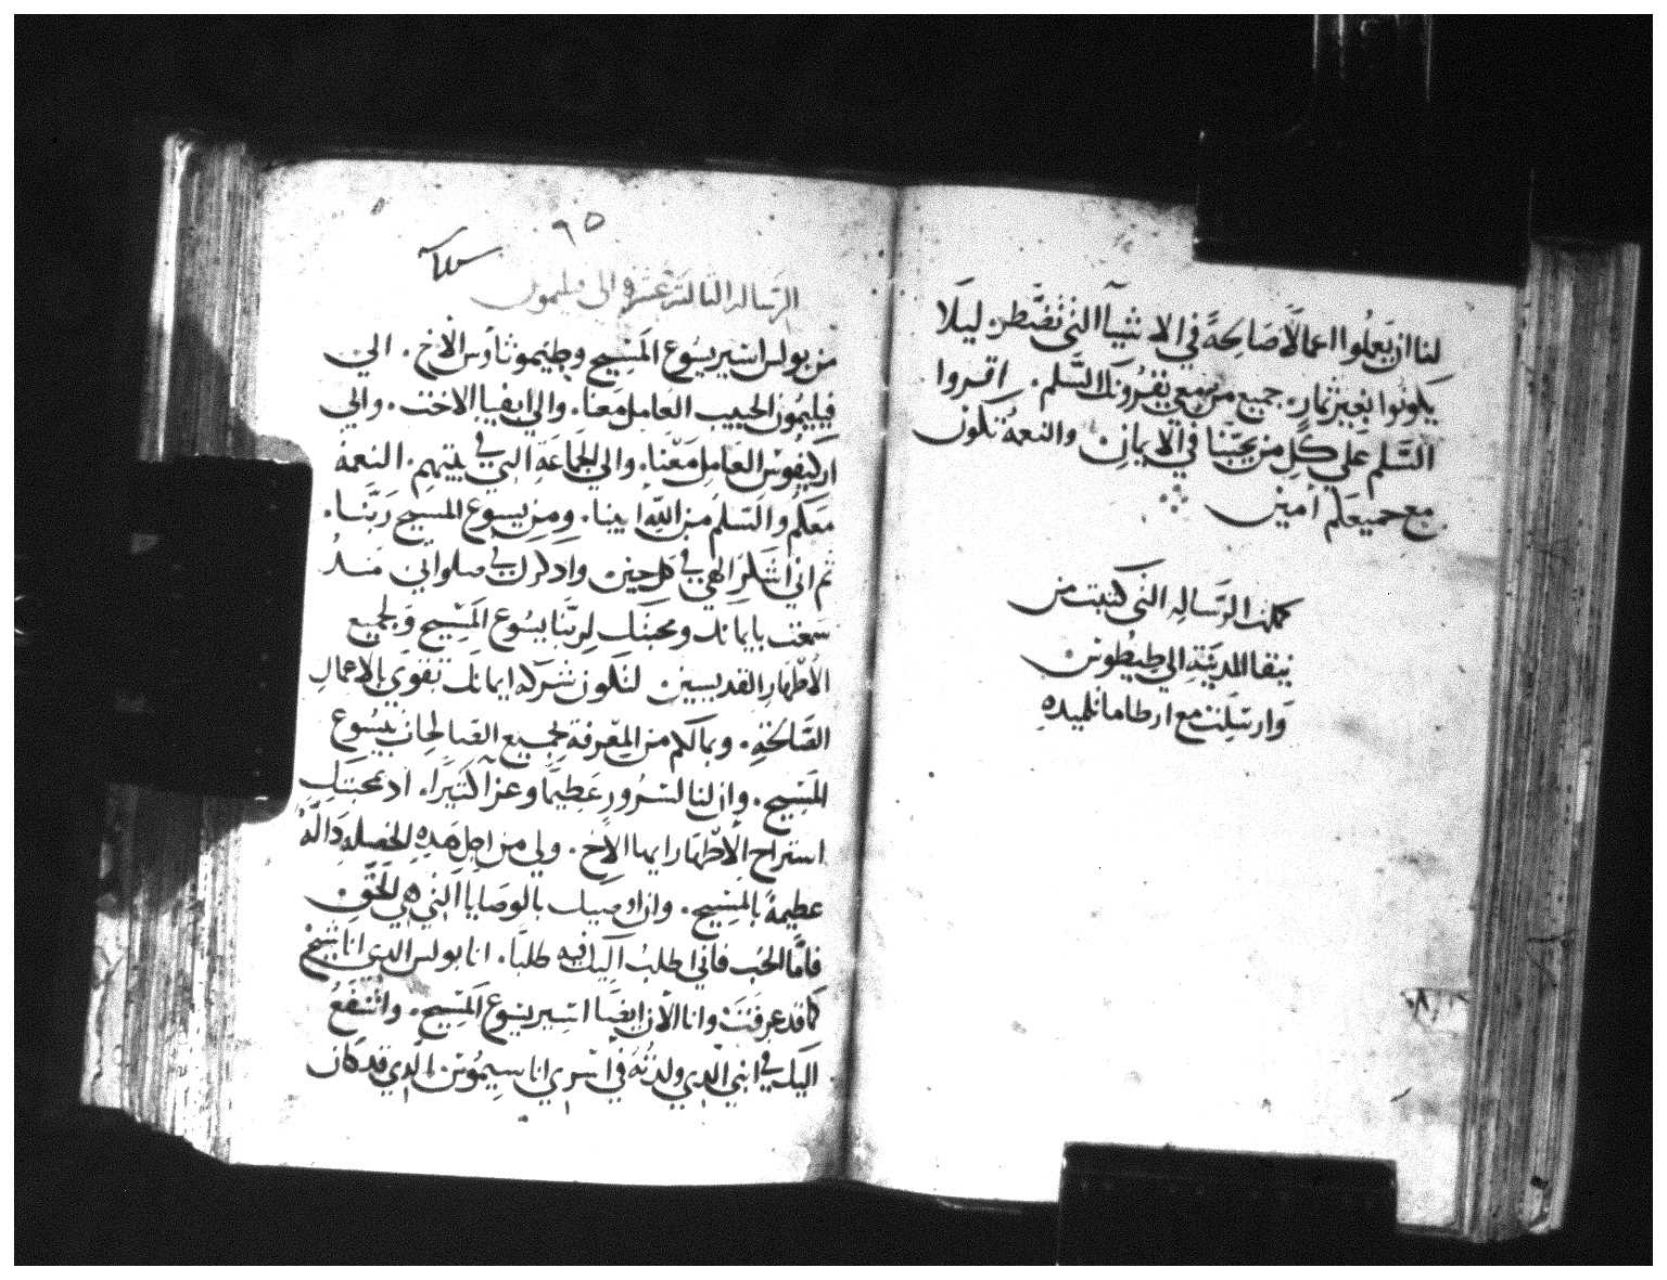 لنا ان يعملوا اعمالًا صَالحةً في الاشيآ التي تضطر. ليلَا
يكونوا بغير ثمار. جميع من معي يقرونك السَّلم. اقروا
السَّلم عَلي كُلِ من يحبّنا في الايمان. والنعمةُ تكون
مع جميعكم امين
كملت الرّسالِه التي كتبت من
نيقا المدينَةِ الي طيطوس.
وَارسِلت مع ارطاما تلميدهِ
٩٥
الرّساله الثالثةَ عشرة الي فيليمون
من بولس اسير يسُوع المَسْيح وطيمُوثاوس الاخ. الي
فيليمون الحبيب العامل مَعنا. والي ابفيا الاخت. والي
اركيفوس العَامِل مَعّنا. والي الجَماعَةِ التي في بيتهم. النعمه
معكم والسَلمُ من اللّه ابينا. ومن يسوع المسيح رَبّنا.
ثم اني اشكر الهي في كل حين وادكرك في صلواتي مند
سَمعت بايمانك ومحبتك لربّنا يسُوع المَسْيح وَلجميع
الاطهارِ القديسين. لتكون شركه ايمانك تقوَي بالاعمالِ
الصَّالحَةِ. وبمالكم من المِعّرفة لجميع الصَالحات بيسُوع
المَسْيح. وان لنا لسرُورٍ عَظيمًا وعزآ كثيرَا. اد بمحبتكِ
استراح الاِطهَار ايها الاخ. ولي من اجل هَدِهِ الخصله دَالةً
عظيمةً بالمسْيح. وان اوصيك بالوصَايا التي هي للحَقِ.
فامَّا الحُب فاني اطلبُ اليك فيه طلبًا. انا بولس الدي انا شيخٌ
كما قد عرفتَ وانا الان ايضًا اسير يسُوع المَسْيح. واشفعُ
اليك في ابني الدي ولدتُهُ في اسري اناسيمُوس الدي قد كان